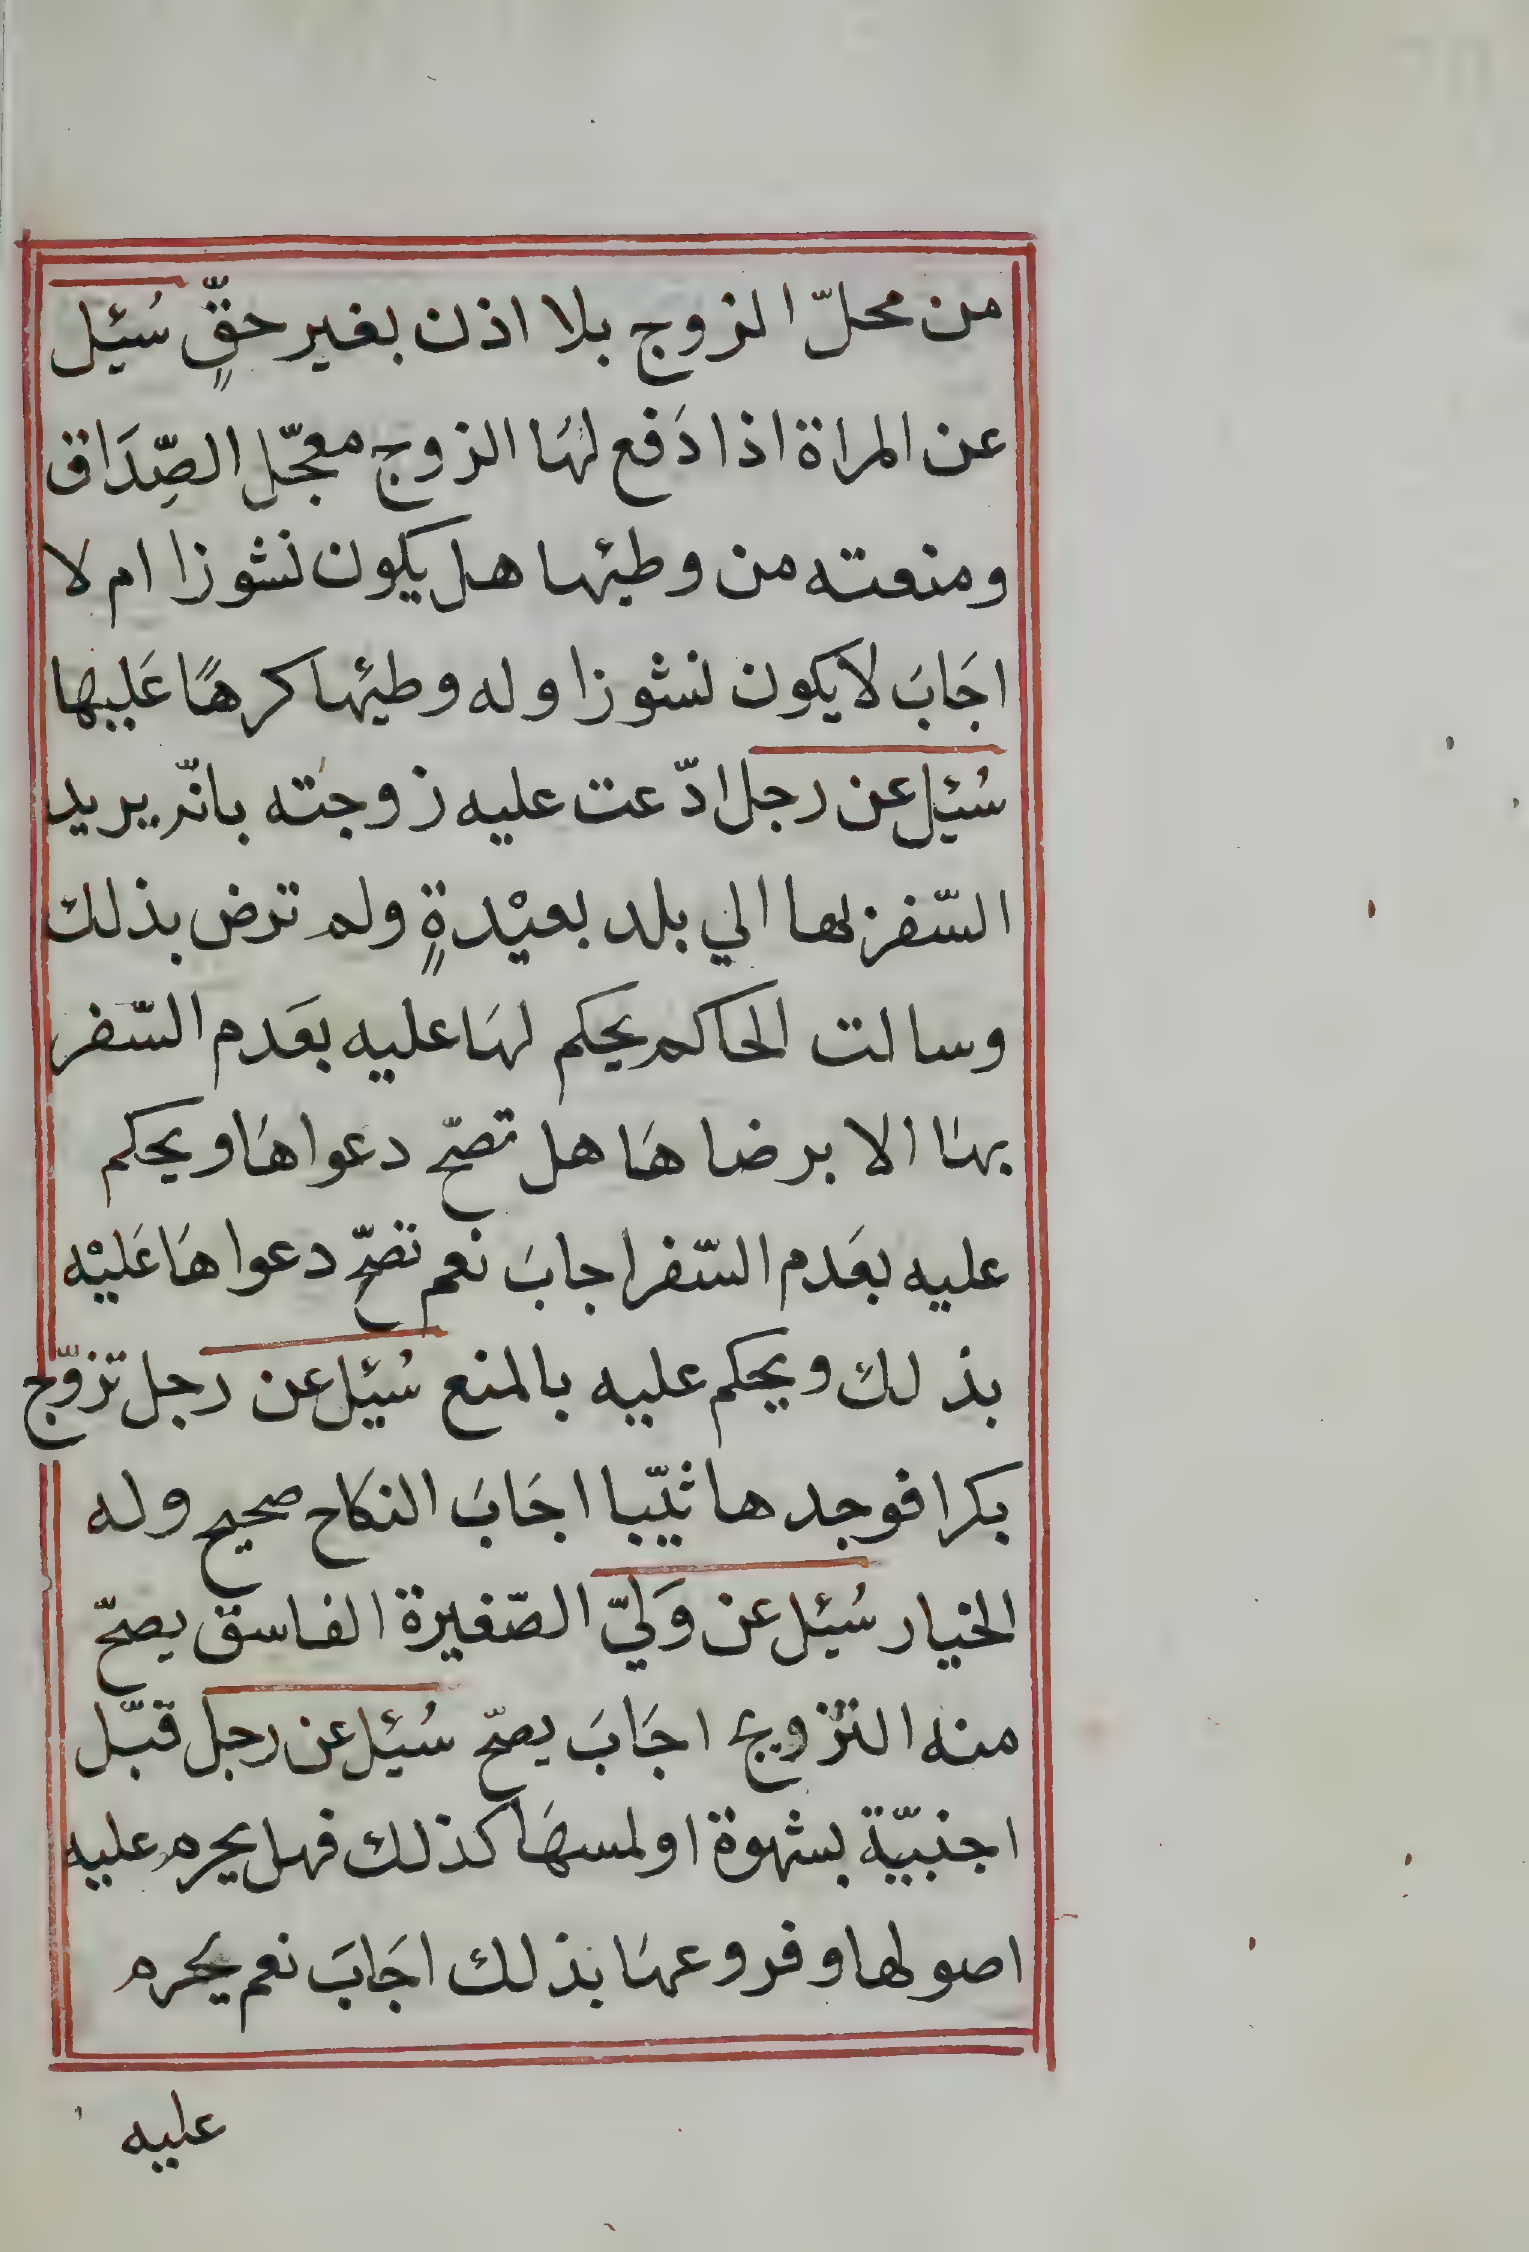 من محلّ الزوج بلا اذن بغير حقٍّ سُئِل
عن المراة اذا دَفع لهَا الزوج معجّل الصِّدَاق
ومنعته من وطئها هل يكون نشوزا ام لا
اجَابَ لا يكون نشوزا وله وطئها كرهًا عَليها
سُئِل عن رجل ادّعت عليه زوجته بانّه يريد
السّفر بها الي بلد بعيْدةٍ ولم ترض بذلك
وسالت الحاكم يحكم لهَا عليه بعَدم السّفر
بهَا الا برضاهَا هل تصحّ دعواهَا ويحكم
عليه بعَدم السّفر اجابَ نعم تصحّ دعواهَا عَليْه
بذلك ويحكم عليه بالمنع سُئِل عن رجل تزوّج
بكرا فوجدها ثيّبا اجَابَ النكاح صحيح وله
الخيار سُئِل عن وَليّ الصّغيرة الفاسق يصحّ
منه التزويج اجَابَ يصحّ سُئِل عن رجل قبّل
اجنبيّة بشهوة او لمسهَا كذلك فهل يحرم عليه
اصولها وفروعهَا بذلك اجَابَ نعم يَحرم
عليه